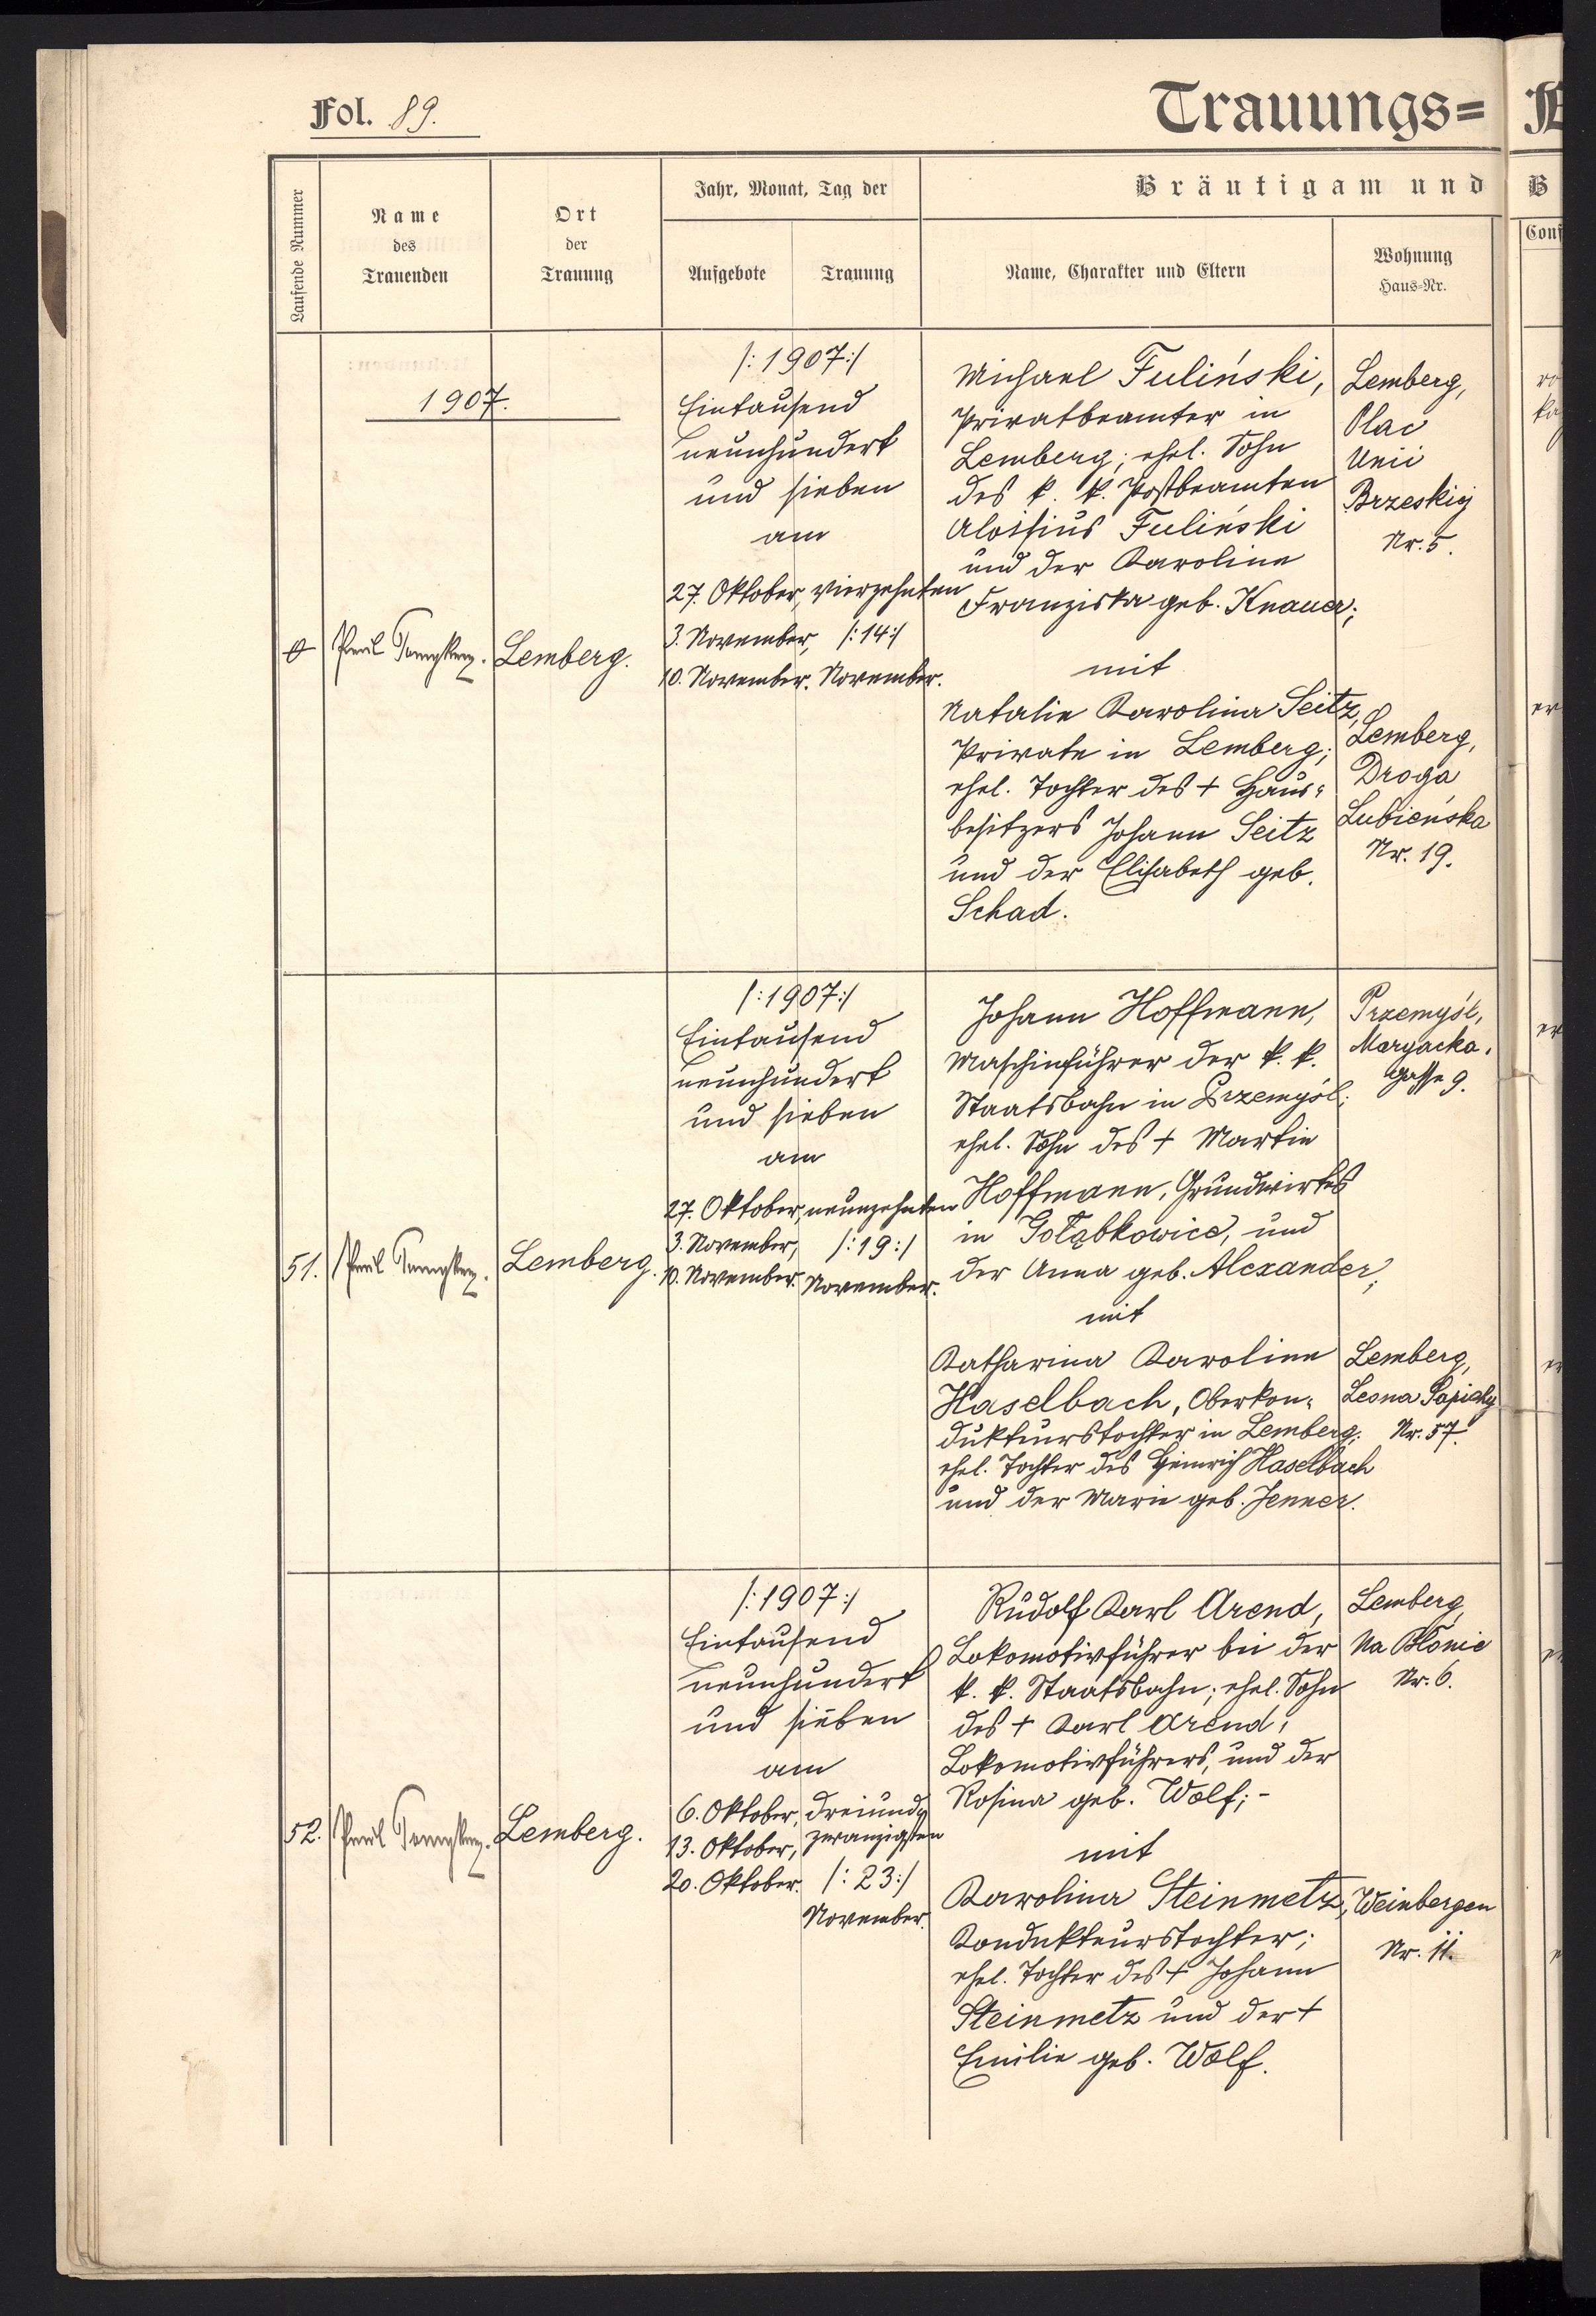 Fol. 89.
Trauungs=
Laufende Nummer
Name
des
Trauenden
Ort
der
Trauung
Jahr, Monat, Tag der
Aufgebote
Trauung
Bräutigam und
Name, Charakter und Eltern
Wohnung
Haus=Nr.
B
Conf
1907.
Lemberg.
/:1907:/
Eintausend
neunhundert
und sieben
am
27. Oktober, vierzehnten
3. November, /:14:/
10. November. November.
Michael Fuliński,
Privatbeamter in
Lemberg; ehel. Sohn
des k. k. Postbeamten
Aloisius Fuliński
und der Karoline
Franziska geb. Knauer;
mit
Natalie Karolina Seitz,
Private in Lemberg;
ehel. Tochter des + Haus=
besitzers Johann Seitz
und der Elisabeth geb.
Schad.
Lemberg,
Plac
Unii
Brzeskiej
Nr. 5.
Lemberg,
Droga
Lubieńska
Nr. 19.
51.
Lemberg.
/:1907:/
Eintausend
neunhundert
und sieben
am
27. Oktober, neunzehnten
3. November, /:19:/
10. November. November.
Johann Hoffmann,
Maschinführer der k. k.
Staatsbahn in Przemyśl;
ehel. Sohn des + Martin
Hoffmann, Grundwirtes
in Gołąbkowice, und
der Anna geb. Alexander;
mit
Katharina Karoline
Haselbach, Oberkon=
dukteurstochter in Lemberg;
ehel. Tochter des Heinrich Haselbach
und der Marie geb. Jenner.
Przemyśl,
Maryacka.
gasse 9.
Lemberg,
Leona Sapiehy
Nr. 57.
52.
Lemberg.
/:1907:/
Eintausend
neunhundert
und sieben
am
6. Oktober, dreiund
13. Oktober, zwanzigsten
20. Oktober. /:23:/
November.
Rudolf Karl Arend,
Lokomotivführer bei der
k. k. Staatsbahn; ehel. Sohn
des + Karl Arend,
Lokomotivführers, und der
Rosina geb. Wolf; -
mit
Karolina Steinmetz,
Kondukteurstochter;
ehel. Tochter des + Johann
Steinmetz und der +
Emilie geb. Wolf.
Lemberg,
Na Błonie
Nr. 6.
Weinbergen
Nr. 11.